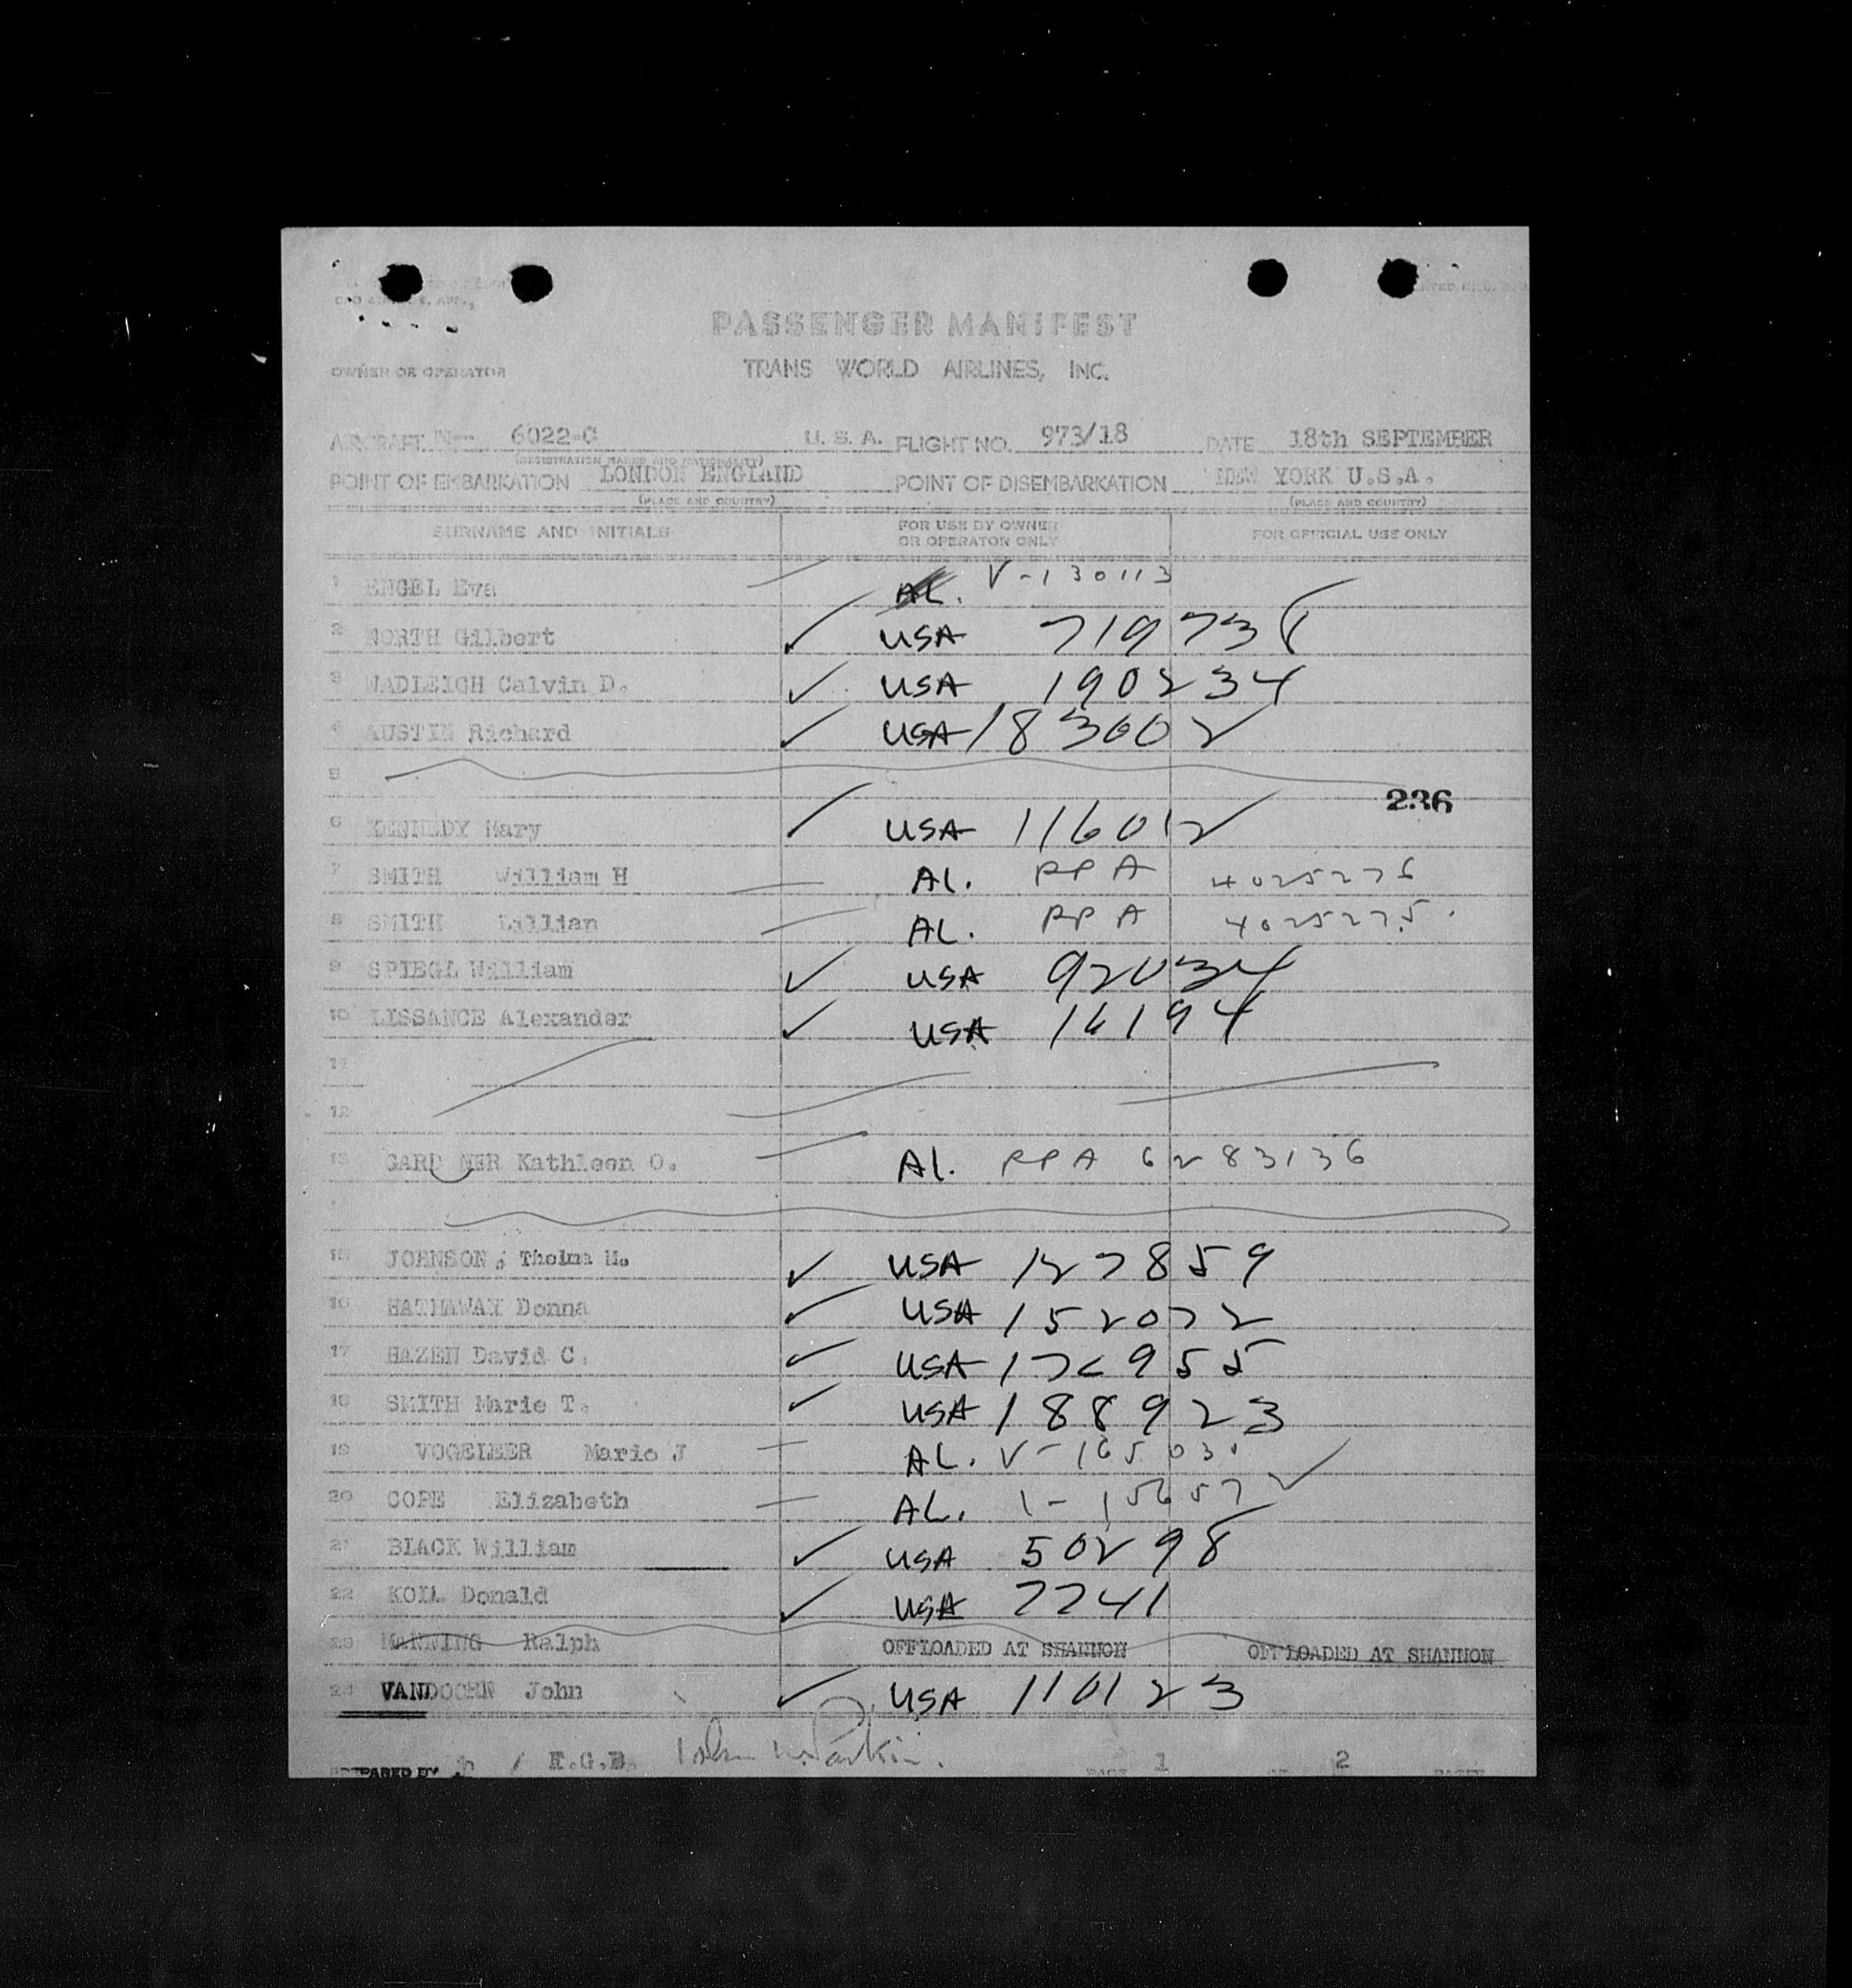 PASSENGER MANIFEST
OWNER OR OPERATOR TRANS WORLD AIRLINES, INC.
AIRCRAFT N-- 6022-C U. S. A. FLIGHT NO. 973/18 DATE 18th SEPTEMBER
(REGISTRATION MARKS AND NATIONALITY)
POINT OF EMBARKATION LONDON ENGLAND POINT OF DISEMBARKATION NEW YORK U.S.A.
(PLACE AND COUNTRY) (PLACE AND COUNTRY)
SURNAME AND INITIALS FOR USE BY OWNER OR OPERATOR ONLY FOR OFFICIAL USE ONLY
1 ENGEL Eva AL. V-130113
2 NORTH Gilbert USA 719738
3 WADLEIGH Calvin D. USA 190234
4 AUSTIN Richard USA 183602
5
236
6 KENNEDY Mary USA 116012
7 SMITH William H AL. PPA 4025276
8 SMITH Lillian AL. PPA 4025275.
9 SPIEGL William USA 92034
10 LISSANCE Alexander USA 16194
11
12
13 GARD NER Kathleen O. AL. PPA 6283136
15 JOHNSON, Thelma M. USA 127859
16 HATHAWAY Donna USA 152072
17 HAZEN David C. USA 176955
18 SMITH Marie T. USA 188923
19 VOGELEER Marie J AL.
20 COPE Elizabeth AL.
21 BLACK William USA 50298
22 KOIL Donald USA 7741
23 MANNING Ralph OFFLOADED AT SHANNON OFFLOADED AT SHANNON
24 VANDOORN John USA 110123
PREPARED BY E.G.B. PAGE 1 OF 2 PAGES